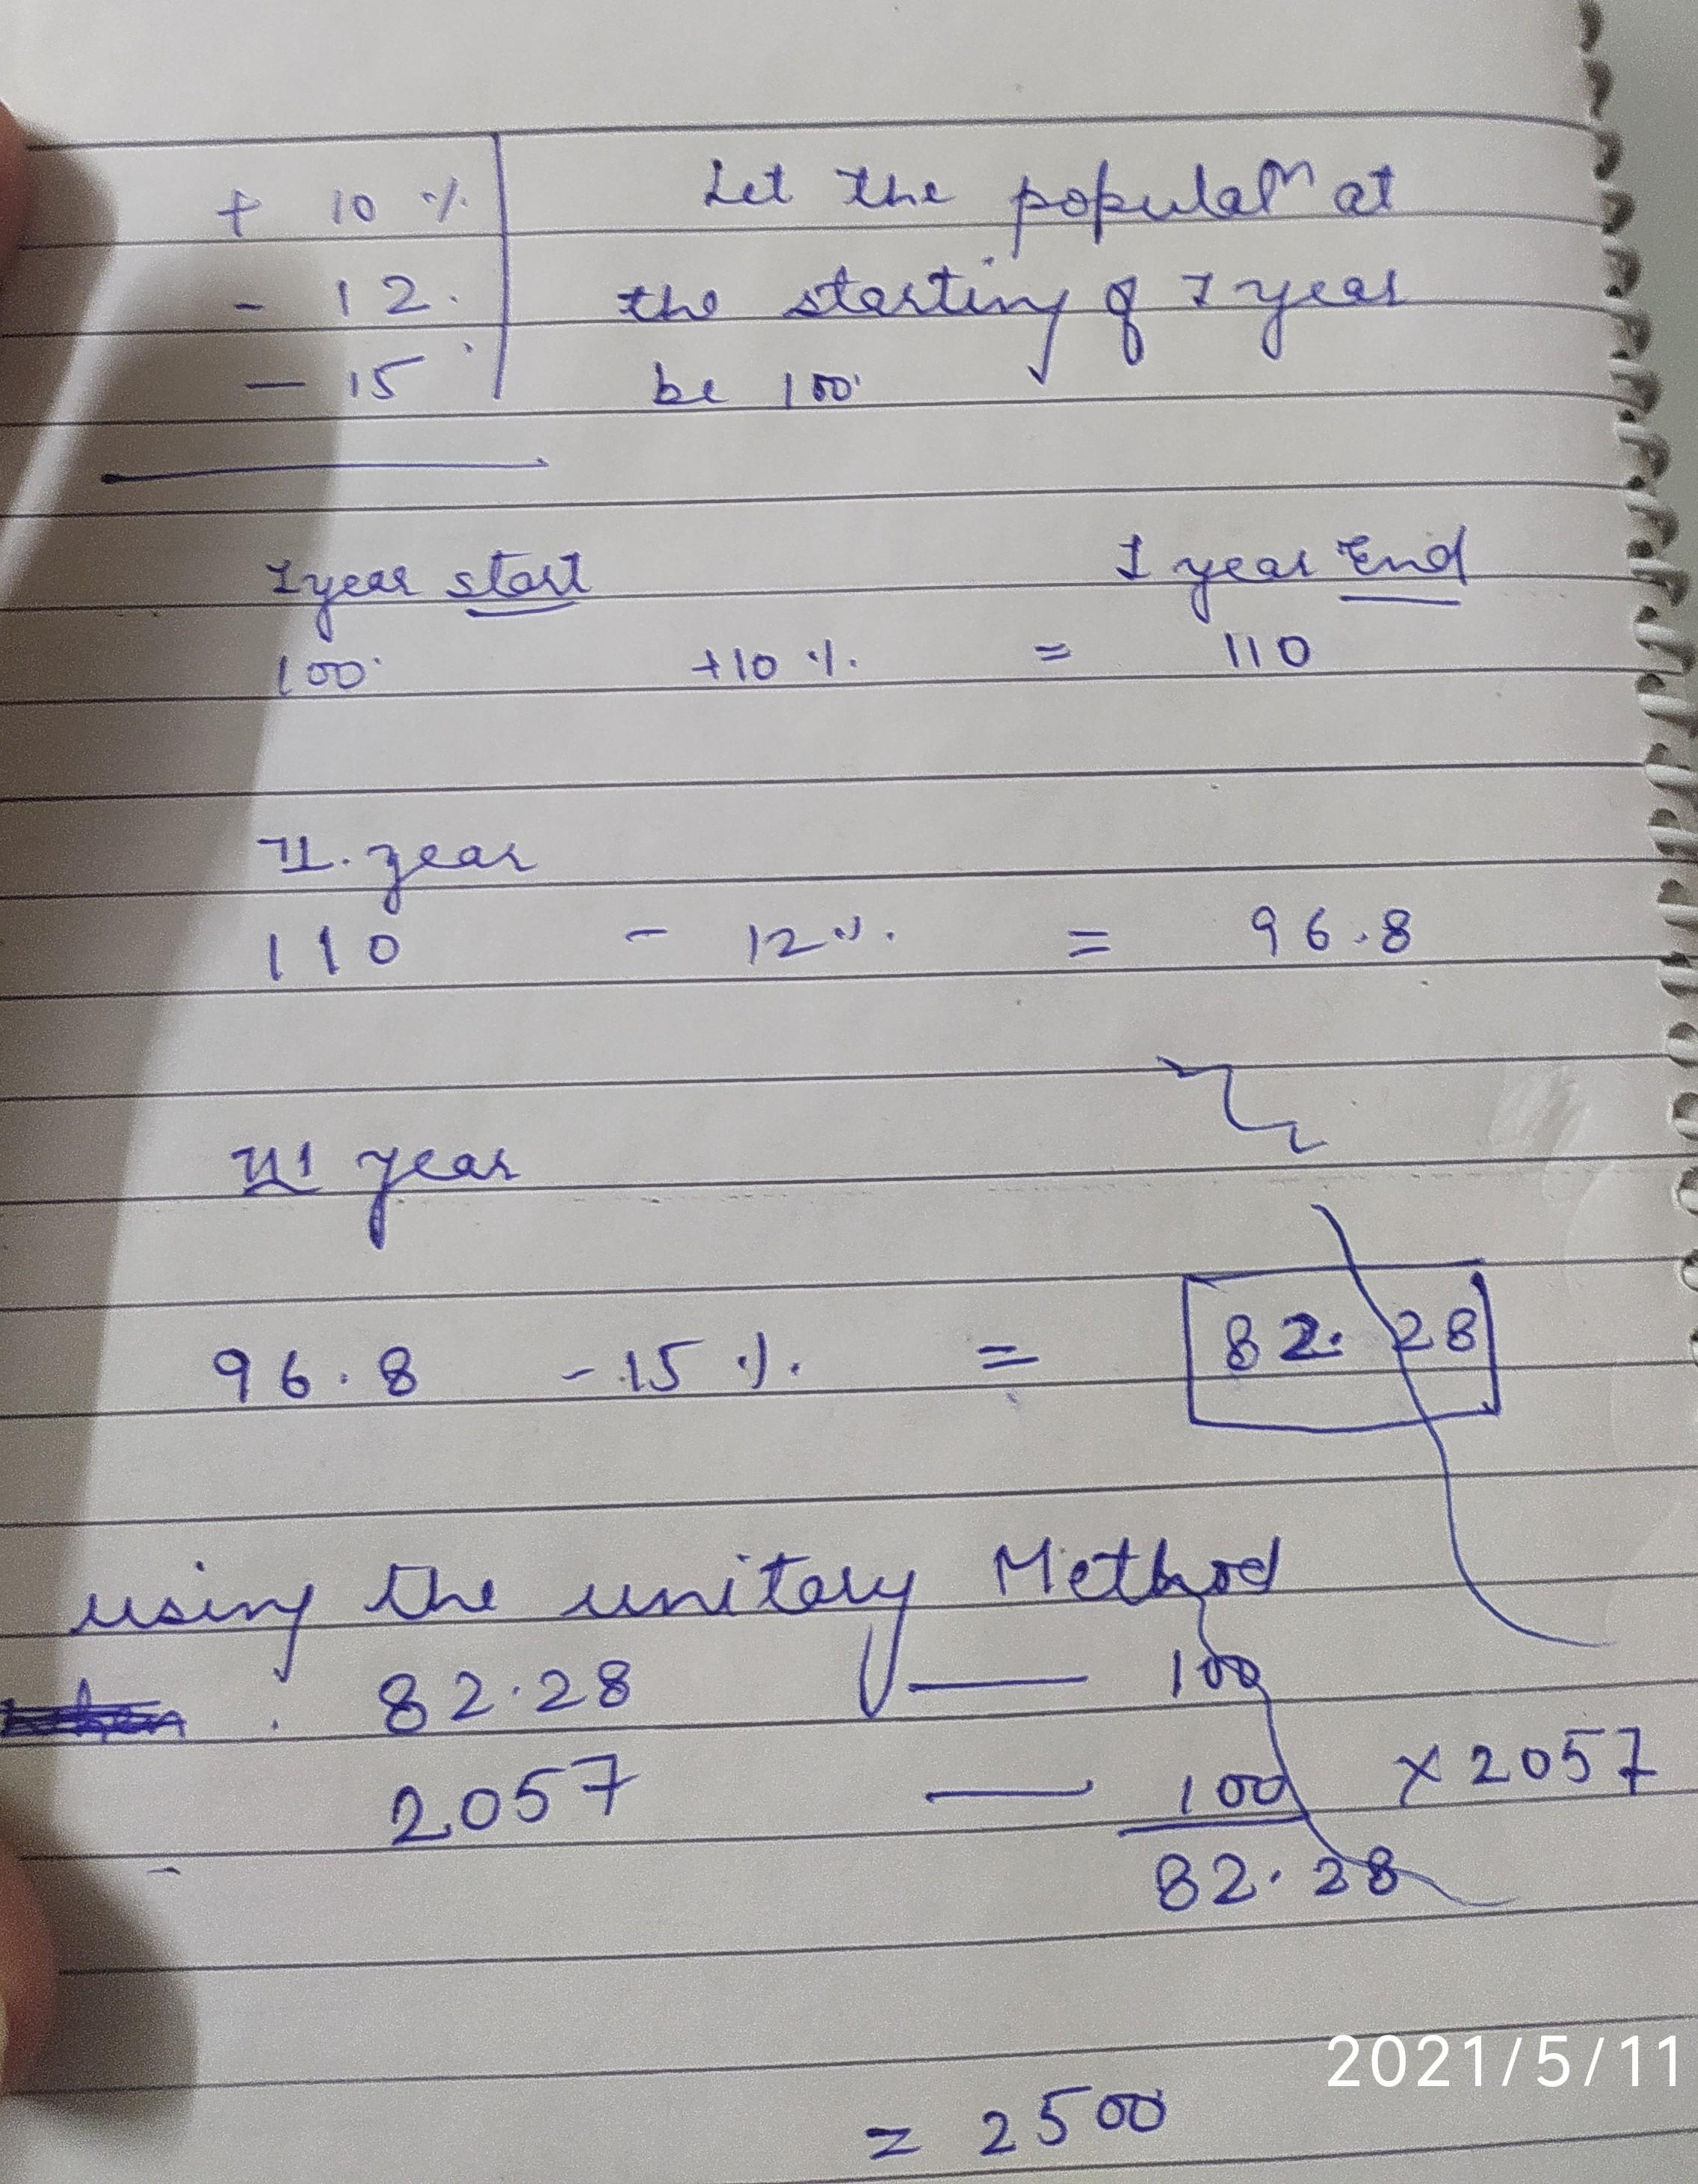 + 10 %
- 12.
- 15
Let the populatn at
the starting of I year
be 100
I year start I year End
100 +10 % = 110
II. year
110 - 12 %. = 96.8
III year
96.8 - 15 %. = 82.28
using the unitary Method
82.28 — 100
2057 — 100 × 2057
82.28
= 2500
2021/5/11